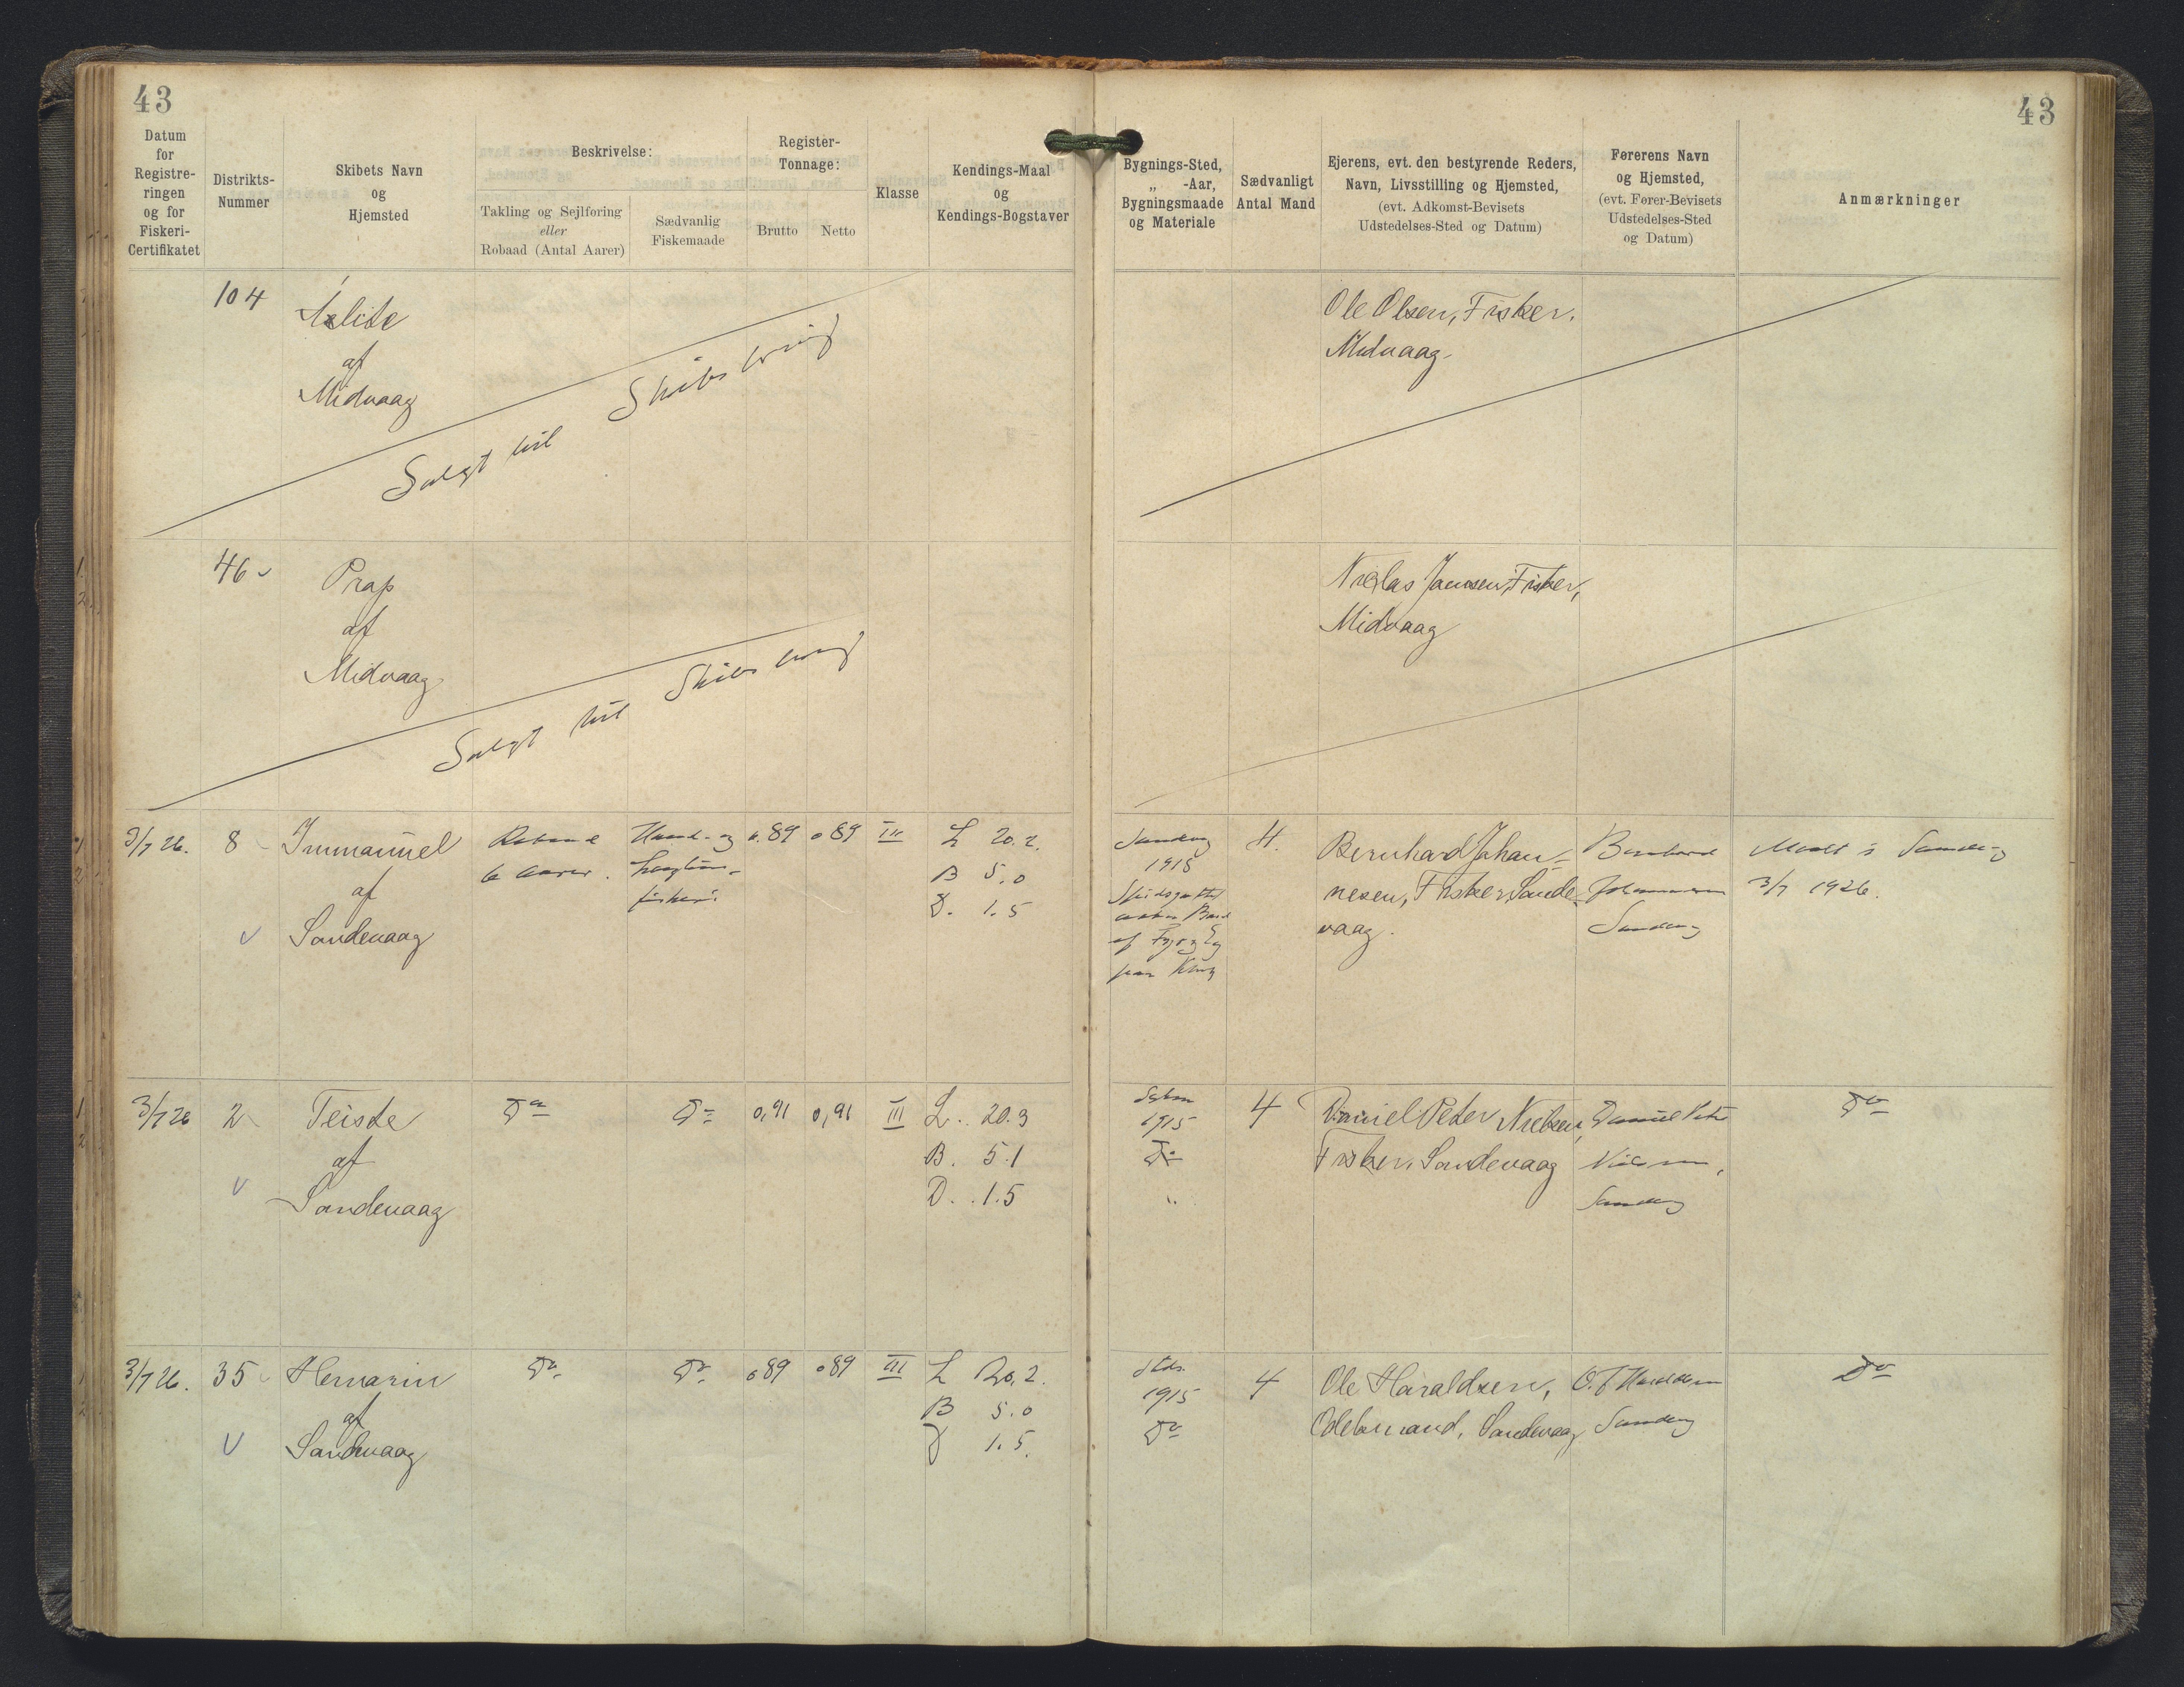 43
43
Datum
for
Registre-
ringen
og for
Fiskeri-
Certifikatet
Distrikts-
Nummer
Skibets Navn
og
Hjemsted
Beskrivelse:
Takling og Sejlføring
eller
Robaad (Antal Aarer)
Sædvanlig
Fiskemaade
Register-
Tonnage:
Brutto
Netto
Klasse
Kendings-Maal
og
Kendings-Bogstaver
Bygnings-Sted,
„ -Aar,
Bygningsmaade
og Materiale
Sædvanligt
Antal Mand
Ejerens, evt. den bestyrende Reders,
Navn, Livsstilling og Hjemsted,
(evt. Adkomst-Bevisets
Udstedelses-Sted og Datum)
Førerens Navn
og Hjemsted,
(evt. Fører-Bevisets
Udstedelses-Sted
og Datum)
Anmærkninger
104
af
Midvaag
Solgt til
Ole Olsen, Fisker.
Midvaag.
46
Prap
af
Midvaag
Solgt til
Fisker,
Midvaag
3/7 26.
8
Immanuel
af
Sandevaag
Robaad
6 Aarer.
Haand- og
Langline-
fiskeri
0.89
0 89
III
L 20.2.
B 5.0
D. 1.5
Sandevaag
1915
af Fyr og Eg
paa Kravel
4.
Bernhard Johan-
nesen, Fisker, Sande-
vaag.
Bernhard
Johannesen
Sandevaag
Maalt i Sandevaag
3/7 1926.
3/7 26
2
Teiste
af
Sandevaag
Do
Do
0,91
0,91
III
L. 20.3
B. 5.1
D. 1.5
1915
Do
"
4
Daniel Peter Nielsen,
Fisker, Sandevaag
Daniel Peter
Nielsen,
Sandevaag
Do
3/7 26.
35
af
Sandevaag
Do
Do
0 89
0 89
III
L 20,2.
B 5.0
D 1.5.
1915
Do
4
Ole Haraldsen,
Odelsmand, Sandevaag
O. J. Haraldsen
Sandevaag
Do